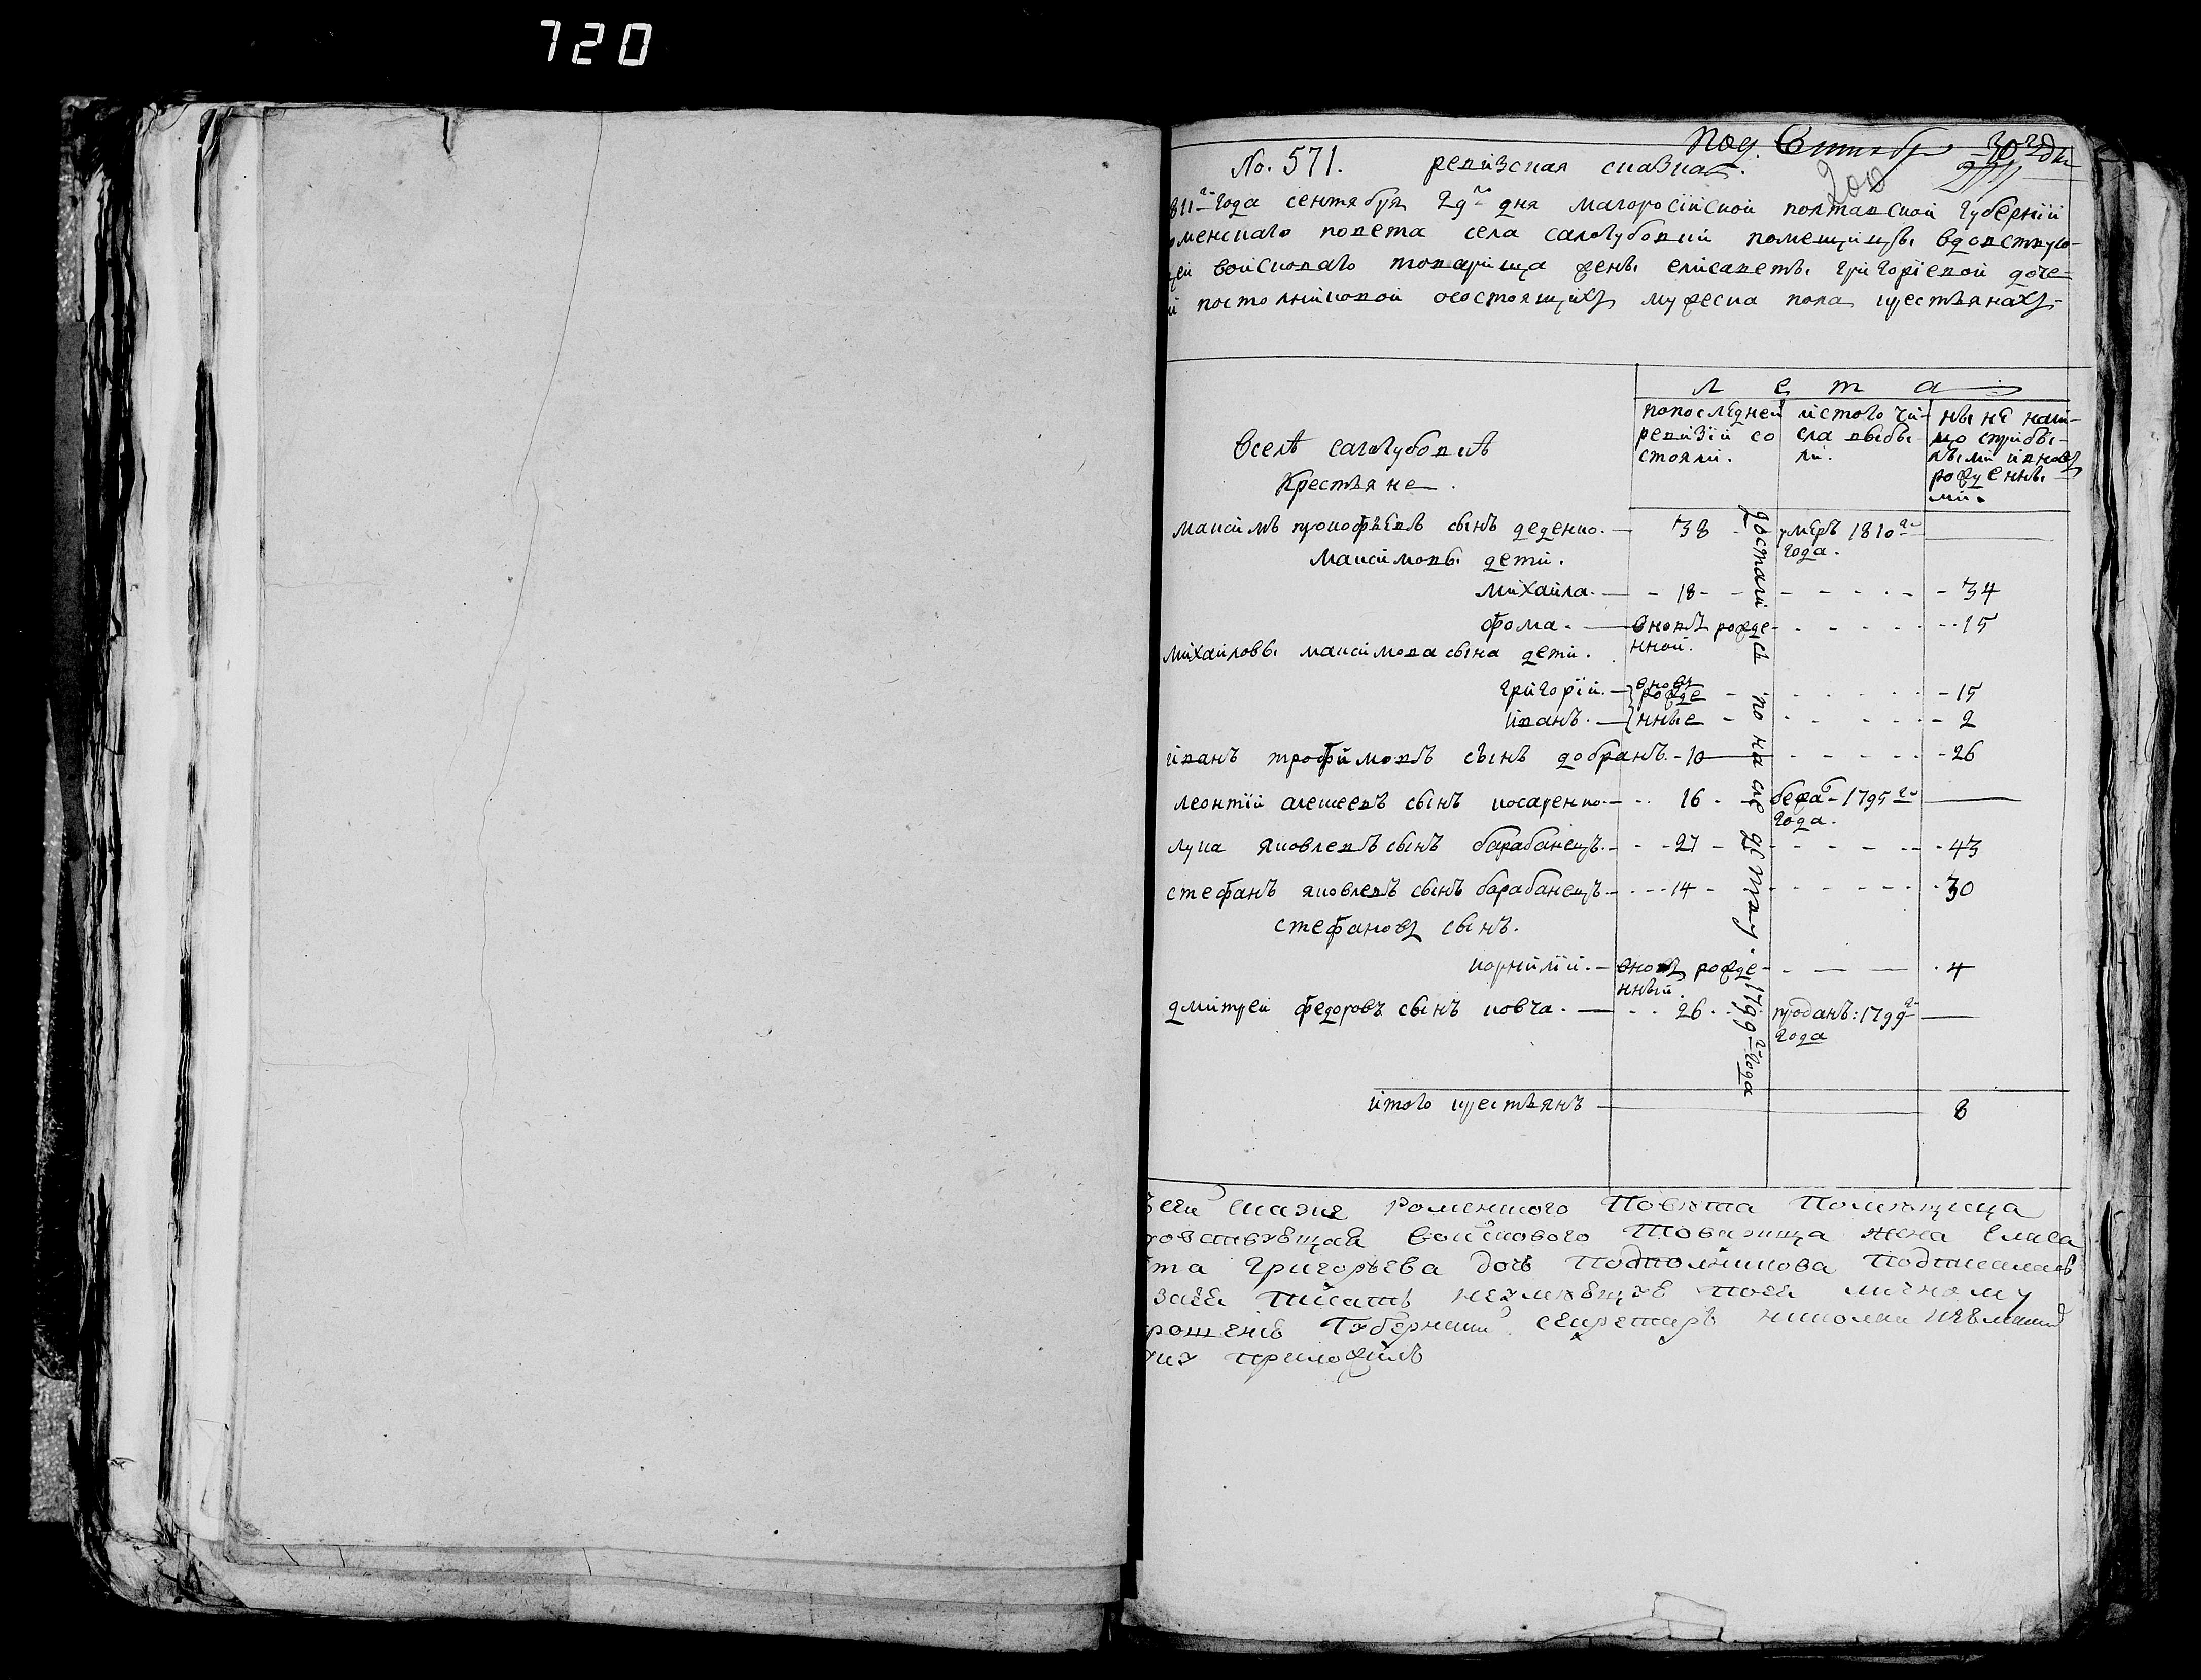 720
Под. Сентябр 30 го дн
No. 571. ревизская сказка.
200
811 г- года сентября 29 го дня малоросійской полтавской губерніи
оменскаго повета села салогубовки помещицы вдовствую-
щей войскового товарища жены елисаветы григоріевой доче-
и постолниковой осостоящихъ мужеска пола крестьянахъ
лета
Вселѣ салогубовкѣ
Крестьяне.
попоследней
ревизіи со
стояли.
исътого чи-
сла выбы-
ли.
ныне нали-
цо сприбы-
лыми ивновъ
рожденны-
ми.
максимъ прокофьевъ сынъ деденко. 38 умеръ 1810 г-
года.
максимовы дети.
михайла. 18 34
фома. вновъ рожде- 15
нной.
михайловы максимова сына дети.
григорій. вновъ рожде 15
иванъ. нные 2
иванъ трофимовъ сынъ добранъ. 10 26
леонтій алексеевъ сынъ косаренко. 16 бежа- 1795 г-
года.
лука яковлевъ сынъ барабанецъ. 27 43
стефанъ яковлевъ сынъ барабанецъ. 14 30
стефановъ сынъ.
корнилій. вновъ рожде- 4
нный.
дмитрей федоровъ сынъ ковча. 26 проданъ: 1799 г-
года
достались по наследству. 1799 г- года
итого крестьянъ 8
ъсей сказке Роменского Повета Помещица
довствующая войскового Товарища жена Елиса
та Григорьева дочь Подписалась
писать неумеющую поея личному
рошенію Губернский секретарь николай
руку приложилъ